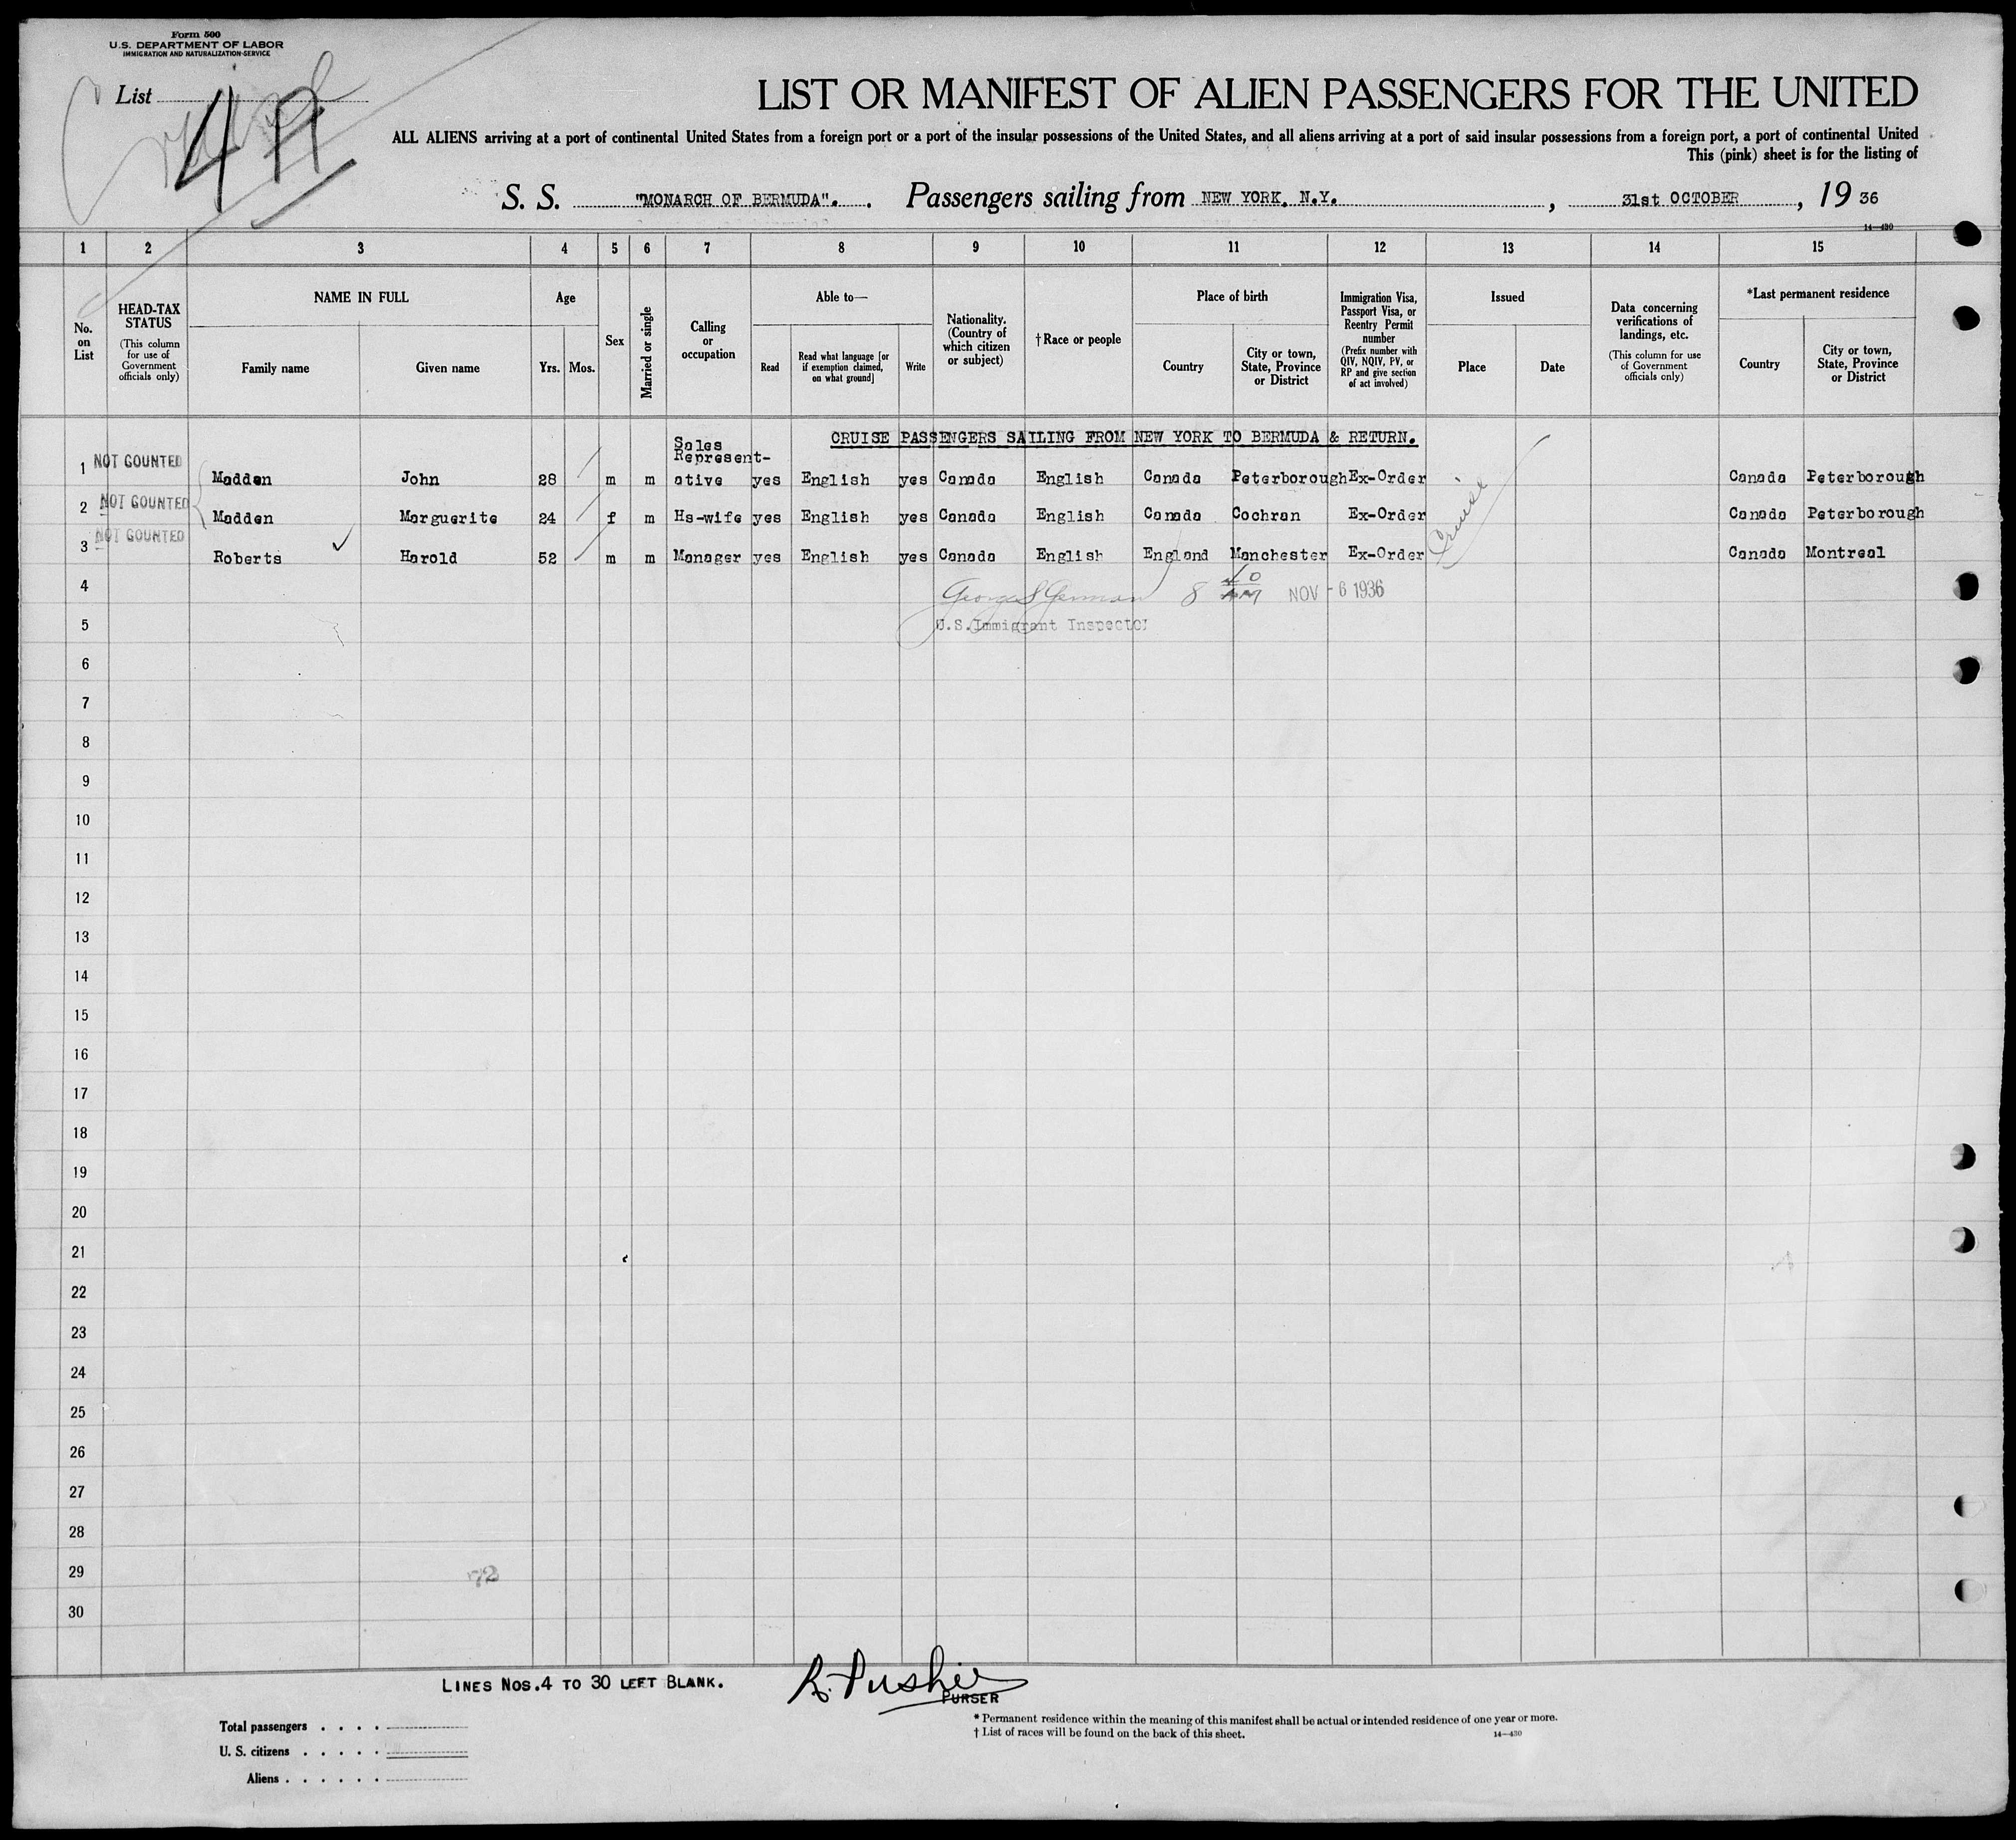 Form 500
U.S. DEPARTMENT OF LABOR
IMMIGRATION AND NATURALIZATION SERVICE
List 4
LIST OR MANIFEST OF ALIEN PASSENGERS FOR THE UNITED
ALL ALIENS arriving at a port of continental United States from a foreign port or a port of the insular possessions of the United States, and all aliens arriving at a port of said insular possessions from a foreign port, a port of continental United
This (pink) sheet is for the listing of
S. S. "MONARCH OF BERMUDA". Passengers sailing from NEW YORK, N.Y. , 31st OCTOBER , 19 36
14—430
1 2 3 4 5 6 7 8 9 10 11 12 13 14 15
No. on List
HEAD-TAX STATUS (This column for use of Government officials only)
NAME IN FULL Family name Given name
Age Yrs. Mos.
Sex
Married or single
Calling or occupation
Able to— Read Read what language [or if exemption claimed, on what ground] Write
Nationality. (Country of which citizen or subject)
†Race or people
Place of birth Country City or town, State, Province or District
Immigration Visa, Passport Visa, or Reentry Permit number (Prefix number with QIV, NQIV, PV, or RP and give section of act involved)
Issued Place Date
Data concerning verifications of landings, etc. (This column for use of Government officials only)
*Last permanent residence Country City or town, State, Province or District
CRUISE PASSENGERS SAILING FROM NEW YORK TO BERMUDA & RETURN.
Sales
Represent-
1 NOT COUNTED Madden John 28 m m ative yes English yes Canada English Canada Peterborough Ex-Order Canada Peterborough
2 NOT COUNTED Madden Marguerite 24 f m Hs-wife yes English yes Canada English Canada Cochran Ex-Order Canada Peterborough
3 NOT COUNTED Roberts Harold 52 m m Manager yes English yes Canada English England Manchester Ex-Order Canada Montreal
Cruise
4 George S German 8 40 AM NOV - 6 1936
5 U.S. Immigrant Inspector
6
7
8
9
10
11
12
13
14
15
16
17
18
19
20
21
22
23
24
25
26
27
28
29 72
30
LINES NOS. 4 TO 30 LEFT BLANK.
PURSER
Total passengers . . . .
U. S. citizens . . . . .
Aliens . . . . . .
* Permanent residence within the meaning of this manifest shall be actual or intended residence of one year or more.
† List of races will be found on the back of this sheet.
14—430